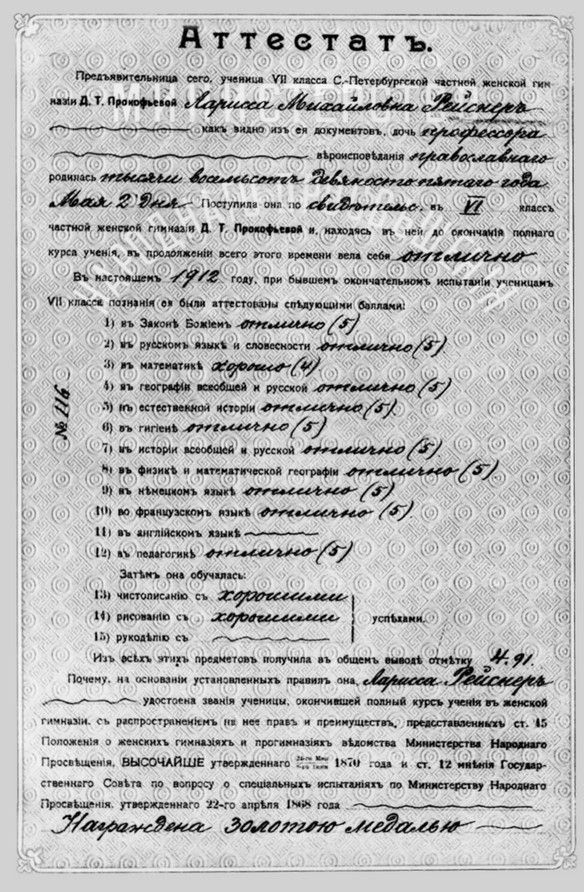 Аттестатъ.
Предъявительница сего, ученица VII класса С.-Петербургской частной женской гим-
назіи Д. Т. Прокофьевой Ларисса Михайловна Рейснеръ
какъ видно изъ ея документовъ, дочь профессора
вѣроисповѣданія православнаго
родилась тысячи восемьсотъ девяносто пятаго года
Мая 2 дня Поступила она по свидѣтельс. въ VI классъ
частной женской гимназіи Д. Т. Прокофьевой и, находясь въ ней до окончанія полнаго
курса ученія, въ продолженіи всего этого времени вела себя отлично
Въ настоящемъ 1912 году, при бывшемъ окончательномъ испытаніи ученицамъ
VII класса познанія ея были аттестованы слѣдующими баллами:
1) въ Законѣ Божіемъ отлично (5)
2) въ русскомъ языкѣ и словесности отлично (5)
3) въ математикѣ хорошо (4)
4) въ географіи всеобщей и русской отлично (5)
5) въ естественной исторіи отлично (5)
6) въ гигіенѣ отлично (5)
7) въ исторіи всеобщей и русской отлично (5)
8) въ физикѣ и математической географіи отлично (5)
9) въ нѣмецкомъ языкѣ отлично (5)
10) во французскомъ языкѣ отлично (5)
11) въ англійскомъ языкѣ
12) въ педагогикѣ отлично (5)
Затѣмъ она обучалась:
13) чистописанію съ хорошими
14) рисованію съ хорошими успѣхами.
15) рукодѣлію съ
Изъ всѣхъ этихъ предметовъ получила въ общемъ выводѣ отмѣтку 4.91.
Почему, на основаніи установленныхъ правилъ она, Ларисса Рейснеръ
удостоена званія ученицы, окончившей полный курсъ ученія въ женской
гимназіи, съ распространеніемъ на нее правъ и преимуществъ, предоставленныхъ ст. 45
Положенія о женскихъ гимназіяхъ и прогимназіяхъ вѣдомства Министерства Народнаго
Просвѣщенія, ВЫСОЧАЙШЕ утвержденнаго 1870 года и ст. 12 мнѣнія Государ-
ственнаго Совѣта по вопросу о спеціальныхъ испытаніяхъ по Министерству Народнаго
Просвѣщенія, утвержденнаго 22-го апрѣля 1868 года
Награждена золотою медалью
№ 116